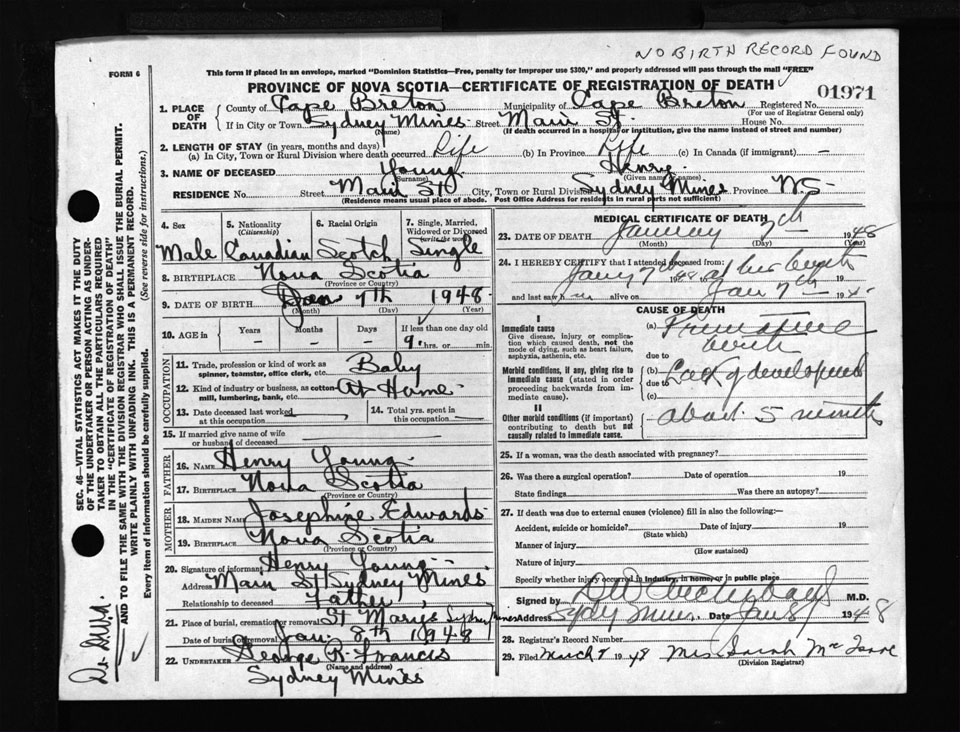 NO BIRTH RECORD FOUND
FORM 6
This form if placed in an envelope, marked "Dominion Statistics—Free, penalty for improper use $300," and properly addressed will pass through the mail "FREE"
PROVINCE OF NOVA SCOTIA—CERTIFICATE OF REGISTRATION OF DEATH
01971
1. PLACE OF DEATH
County of Cape Breton Municipality of Cape Breton Registered No.
(For use of Registrar General only)
If in City or Town Sydney Mines Street Main St. House No.
(Name) (If death occurred in a hospital or institution, give the name instead of street and number)
2. LENGTH OF STAY (in years, months and days)
(a) In City, Town or Rural Division where death occurred Life (b) In Province Life (c) In Canada (if immigrant) —
3. NAME OF DECEASED Young Henry
(Surname) (Given name or names)
RESIDENCE No. Street Main St City, Town or Rural Division Sydney Mines Province N.S.
(Residence means usual place of abode. Post Office Address for residents in rural parts not sufficient)
4. Sex 5. Nationality (Citizenship) 6. Racial Origin 7. Single, Married, Widowed or Divorced (write the word)
Male Canadian Scotch Single
8. BIRTHPLACE Nova Scotia
(Province or Country)
9. DATE OF BIRTH Jan 7th 1948
(Month) (Day) (Year)
10. AGE in Years Months Days If less than one day old
— — — 9 hrs. or min.
OCCUPATION
11. Trade, profession or kind of work as spinner, teamster, office clerk, etc. Baby
12. Kind of industry or business, as cotton-mill, lumbering, bank, etc. At Home
13. Date deceased last worked at this occupation
14. Total yrs. spent in this occupation
15. If married give name of wife or husband of deceased
FATHER
16. NAME Henry Young
17. BIRTHPLACE Nova Scotia
(Province or Country)
MOTHER
18. MAIDEN NAME Josephine Edwards
19. BIRTHPLACE Nova Scotia
(Province or Country)
20. Signature of informant Henry Young
Address Main St Sydney Mines
Relationship to deceased Father
21. Place of burial, cremation or removal St Marys Sydney Mines
Date of burial or removal Jan. 8th 1948
22. UNDERTAKER George R. Francis
(Name and address)
Sydney Mines
MEDICAL CERTIFICATE OF DEATH
23. DATE OF DEATH January 7th 1948
(Month) (Day) (Year)
24. I HEREBY CERTIFY that I attended deceased from:
Jany 7th 1948 at birth 19
and last saw h alive on Jan 7th 19
CAUSE OF DEATH
I
Immediate cause
Give disease, injury or complication which caused death, not the mode of dying, such as heart failure, asphyxia, asthenia, etc.
(a) Premature birth
due to
Morbid conditions, if any, giving rise to immediate cause (stated in order proceeding backwards from immediate cause).
(b) Lack of development
due to
(c)
II
Other morbid conditions (if important) contributing to death but not causally related to immediate cause.
about 5 months
25. If a woman, was the death associated with pregnancy?
26. Was there a surgical operation? Date of operation 19
State findings Was there an autopsy?
27. If death was due to external causes (violence) fill in also the following:—
Accident, suicide or homicide? Date of injury 19
(State which)
Manner of injury
(How sustained)
Nature of injury
Specify whether injury occurred in industry, in home, or in public place
Signed by M.D.
Address Sydy Mines Date Jan 8 1948
28. Registrar's Record Number
29. Filed March 8 1948 Mrs Sarah
(Division Registrar)
SEC. 46—VITAL STATISTICS ACT MAKES IT THE DUTY OF THE UNDERTAKER OR PERSON ACTING AS UNDERTAKER TO OBTAIN ALL THE PARTICULARS REQUIRED IN THE "CERTIFICATE OF REGISTRATION OF DEATH" AND TO FILE THE SAME WITH THE DIVISION REGISTRAR WHO SHALL ISSUE THE BURIAL PERMIT.
WRITE PLAINLY WITH UNFADING INK. THIS IS A PERMANENT RECORD.
Every item of information should be carefully supplied. (See reverse side for instructions.)